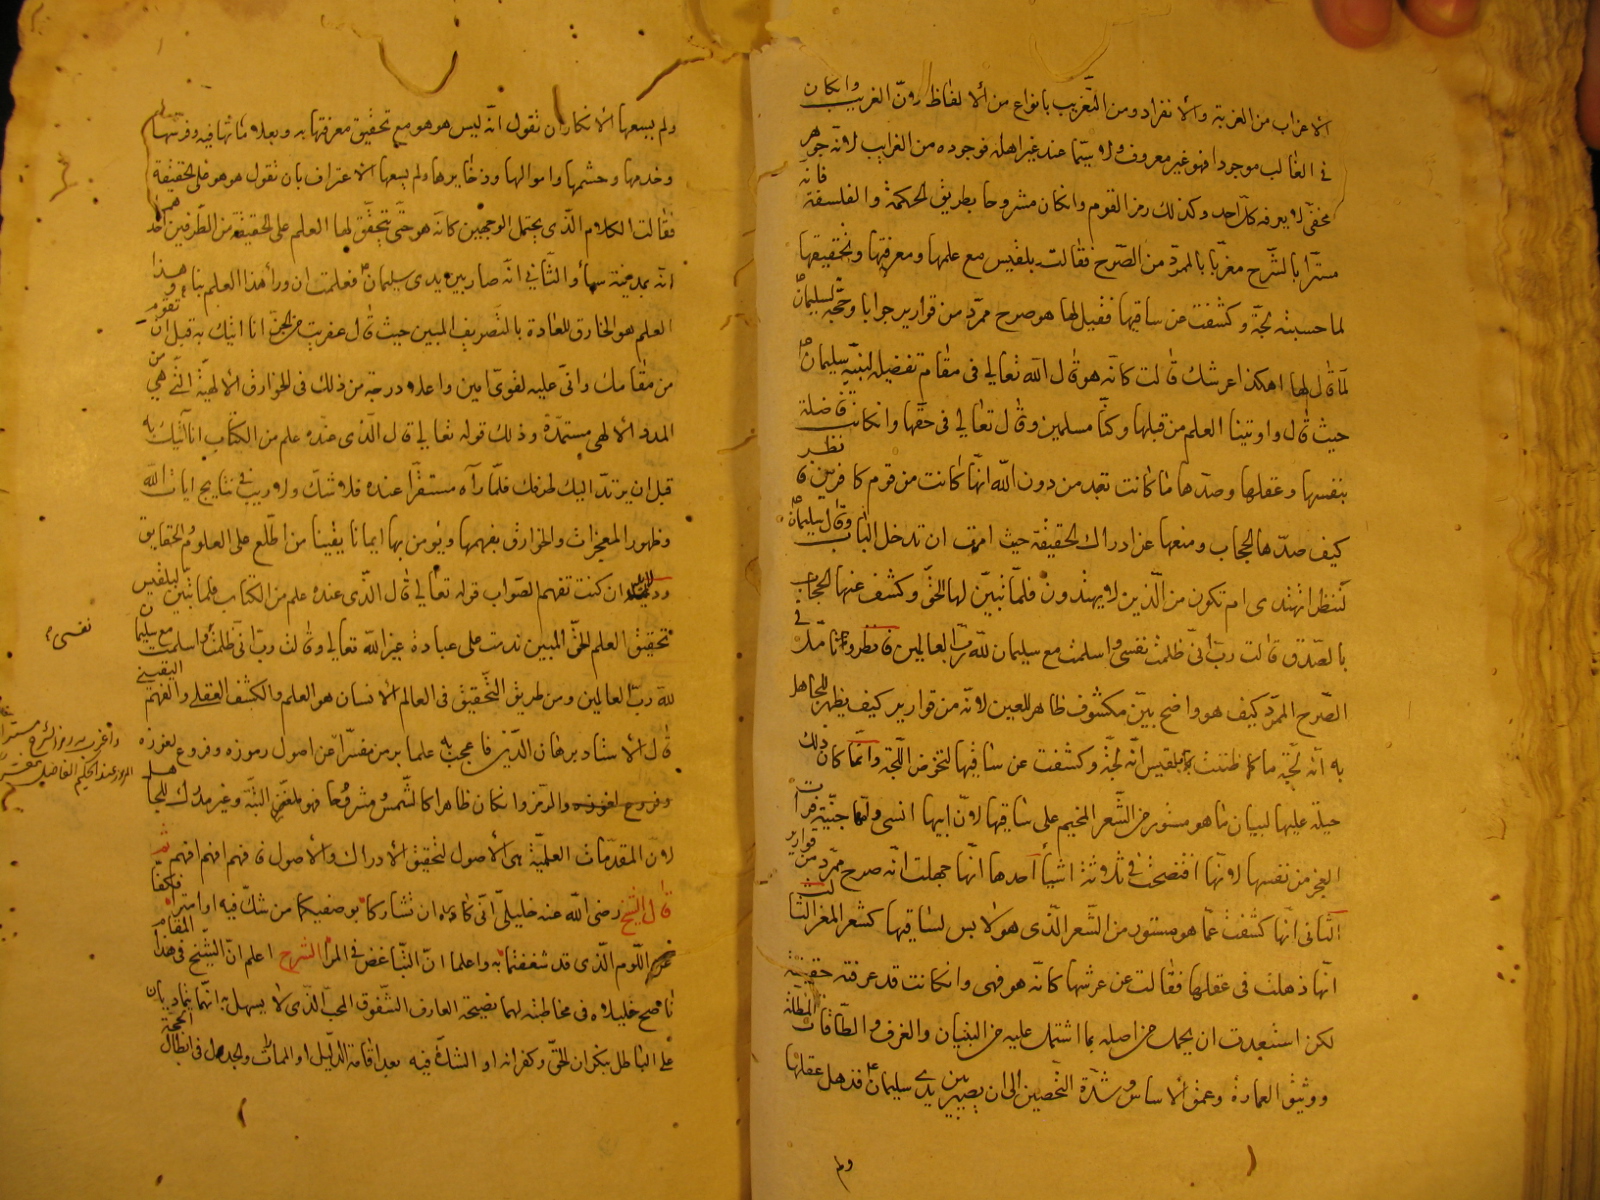 الاغراب من الغربة والانفراد ومن التغريب بانواع من الالفاظ لان الغريب وان كان
في الغالب موجودا فهو غير معروف ولا سيما عند غير اهله فوجوده من الغرايب لانه جوهر
مخفى لا يعرفه كل احد وكذلك رمز القوم وان كان مشروحا بطريق الحكمة والفلسفة فانه
مسترا بالشرح مغربا بالممرد من الصرح فقالت بلقيس مع علمها ومعرفتها وتحقيقها
لما حسبته لجة وكشفت عن ساقيها فقيل لها هو صرح ممرد من قوارير جوابا وحجة لسليمان
لما قال لها اهكذا عرشك قالت كانه هو قال الله تعالى في مقام تفضيله لنبيه سليمان
حيث قال واوتينا العلم من قبلها وكنا مسلمين وقال تعالى في حقها وان كانت فاضلة
بنفسها وعقلها وصدها ما كانت تعبد من دون الله انها كانت من قوم كافرين فانظر
كيف صدها الحجاب ومنعها عن ادراك الحقيقة حيث امرت ان تدخل الباب وقال سليمان
ننظر اتهتدى ام تكون من الذين لا يهتدون فلما تبين لها الحق وكشف عنها الحجاب
بالصدق قالت رب انى ظلمت نفسى واسلمت مع سليمان لله رب العالمين فانظروا تامل في
الصرح الممرد كيف هو واضح بين مكشوف ظاهر للعين لانه من قوارير كيف يظهر للجاهل
به انه لجة ماء كما ظنت بلقيس انه لجة وكشفت عن ساقيها لتخوض اللجة وانما كان ذلك
حيلة عليها لبيان ما هو مستور من الشعر المخيم على ساقيها لان ابيها انسى وامها جنية فرات
العجز من نفسها لانها افتضحت في ثلاثة اشيا احدها انها جهلت انه صرح ممرد من قوارير
الثانى انها كشفت عما هو مستور من الشعر الذى هو لابس لساقيها كشعر المعز الثالث
انها ذهلت في عقلها فقالت عن عرشها كانه هو فهى وان كانت قد عرفته حقيقة
لكن استبعدت ان يحمل من اصله بما اشتمل عليه من البنيان والغرف والطاقات المطلة
ووثيق العمارة وعمق الاساس وشدة التحصين الى ان يصير بين يدي سليمان فذهل عقلها
ولم
ولم يسعها الانكار ان تقول انه ليس هو هو مع تحقيق معرفتها به وبعلاماتها فيه وفرشها
وخدمها وحشمها واموالها وذخايرها ولم يسعها الاعتراف بان تقول هو هو على الحقيقة
فقالت الكلام الذى يحتمل الوجهين كانه هو حتى يتحقق لها العلم على الحقيقة من الطرفين احدهما
انه بمدينة سبأ والثاني انه صار بين يدى سليمان فعلمت ان وراء هذا العلم نباء وهذا
العلم هو الخارق للعادة بالتصريف المبين حيث قال عفريت من الجن انا اتيك به قبل ان تقوم
من مقامك وانى عليه لقوى امين واعلا درجة من ذلك في الخوارق الالهية التى هي من
المدد الالهى مستمدة وذلك قوله تعالى قال الذى عنده علم من الكتاب انا آتيك به
قبل ان يرتد اليك طرفك فلما رآه مستقرا عنده فلا شك ولا ريب في نتايج ايات الله
وظهور المعجزات والخوارق يفهمها ويؤمن بها ايمانا يقينا من اطلع على العلوم بالحقايق
ان كنت تفهم الصواب قوله تعالى قال الذى عنده علم من الكتاب فلما تبين لبلقيس
تحقيق العلم الحق المبين ندمت على عبادة غير الله تعالى وقالت رب انى ظلمت واسلمت مع سليمان
نفسى
لله رب العالمين ومن طريق التحقيق في العالم الانسان هو العلم والكشف العقلى والفهم اليقينى
قال الاستاد برهان الدين فاعجب به علما برمز مفسرا عن اصول رموزه وفروع لغوزه
وفروع لغوزه والرمز وان كان ظاهرا كالشمس مشروحا فهو ملغز البتة وغير مدرك للجاهل
لان المقدمات العلمية هى الاصول لتحقيق الادراك والاصول فافهم افهم افهم ثم
قال الشيخ رضى الله عنه خليلى انى ان تشاركا بوصفيكما من شك فيه او امترا فكفا
عن اللوم الذى قد شغفتما به واعلما ان التباغض في المرا الشرح اعلم ان الشيخ في هذا المقام
ناصح خليلاه في مخاطبته لهما نصيحة العارف الشفوق المحب الذى لا يسهل به انهما يتماديان
على الباطل بنكران الحق وكفرانه او الشك فيه بعد اقامة الدليل او الممات والجدل في ابطال الحجة